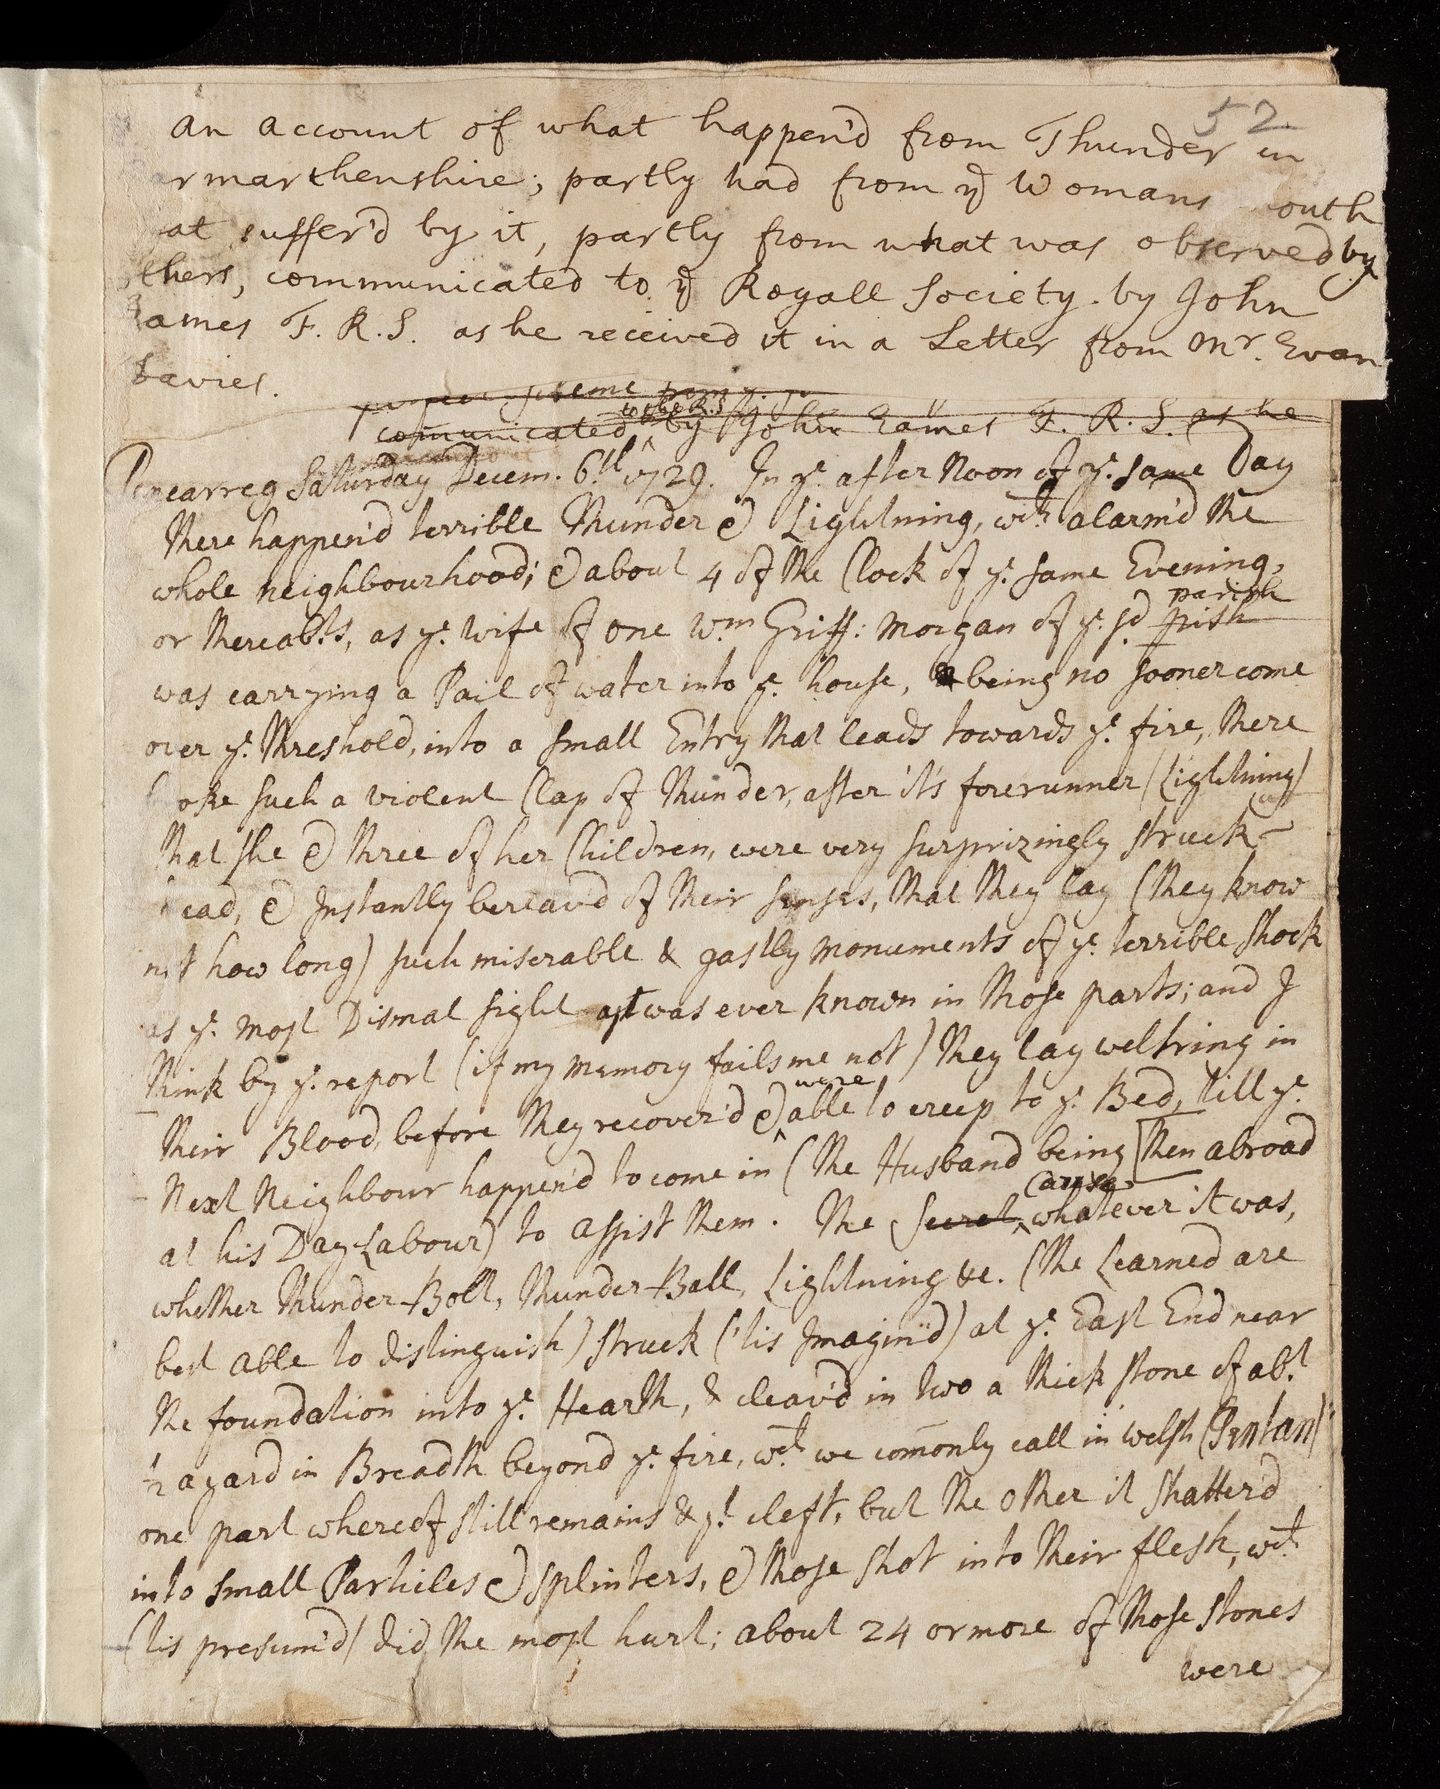 52
An account of what happen'd from Thunder in
armarthenshire; partly had from ye Womans outh
at suffer'd by it, partly from what was observed by
thers, communicated to ye Royall Society by John
Eames F. R. S. as he received it in a Letter from Mr. Evan
Davies.
to the R.S
comunicated by John Eames F. R. S. as he
Pencarreg Saturday Decem. 6th. 1729. In ye. after Noon of ye. same Day
there happen'd terrible Thunder & Lightning, wch. alarm'd the
whole neighbourhood; & about 4 of the Clock of ye. same Evening,
parish
or thereabts, as ye. wife of one Wm Griff: Morgan of ye. sd prish
was carrying a Pail of water into ye. house, being no sooner come
over ye. threshold, into a small Entry that leads towards ye. fire, there
oke such a violent Clap of thunder, after it's forerunner (Lightning)
that she & three of her Children, were very surprizingly struck
ead, & Instantly bereav'd of their senses, that they lay (they know
not how long) such miserable & gastly monuments of ye. terrible shock
as ye. most Dismal sight was ever known in those parts; and I
think by ye. report (if my memory fails me not) they lay weltring in
were
their Blood, before they recover'd & able to creep to ye. Bed, till ye.
Next Neighbour happen'd to come in (the Husband being then abroad
cause
at his Day-Labour) to assist them. The secret, whatever it was,
whether thunder-Bolt, thunder-Ball, Lightning &c. (the Learned are
best able to distinguish) struck ('tis Imagin'd) at ye. East End near
the foundation into ye. Hearth, & cleav'd in two a thick stone of abt.
½ a yard in Breadth beyond ye. fire, wch. we comonly call in welsh (Pentan)
one part whereof still remains & yt cleft, but the other it shatter'd
into small Particles & splinters, & those shot into their flesh, wch.
('tis presum'd) did the most hurt; about 24 or more of those stones
were